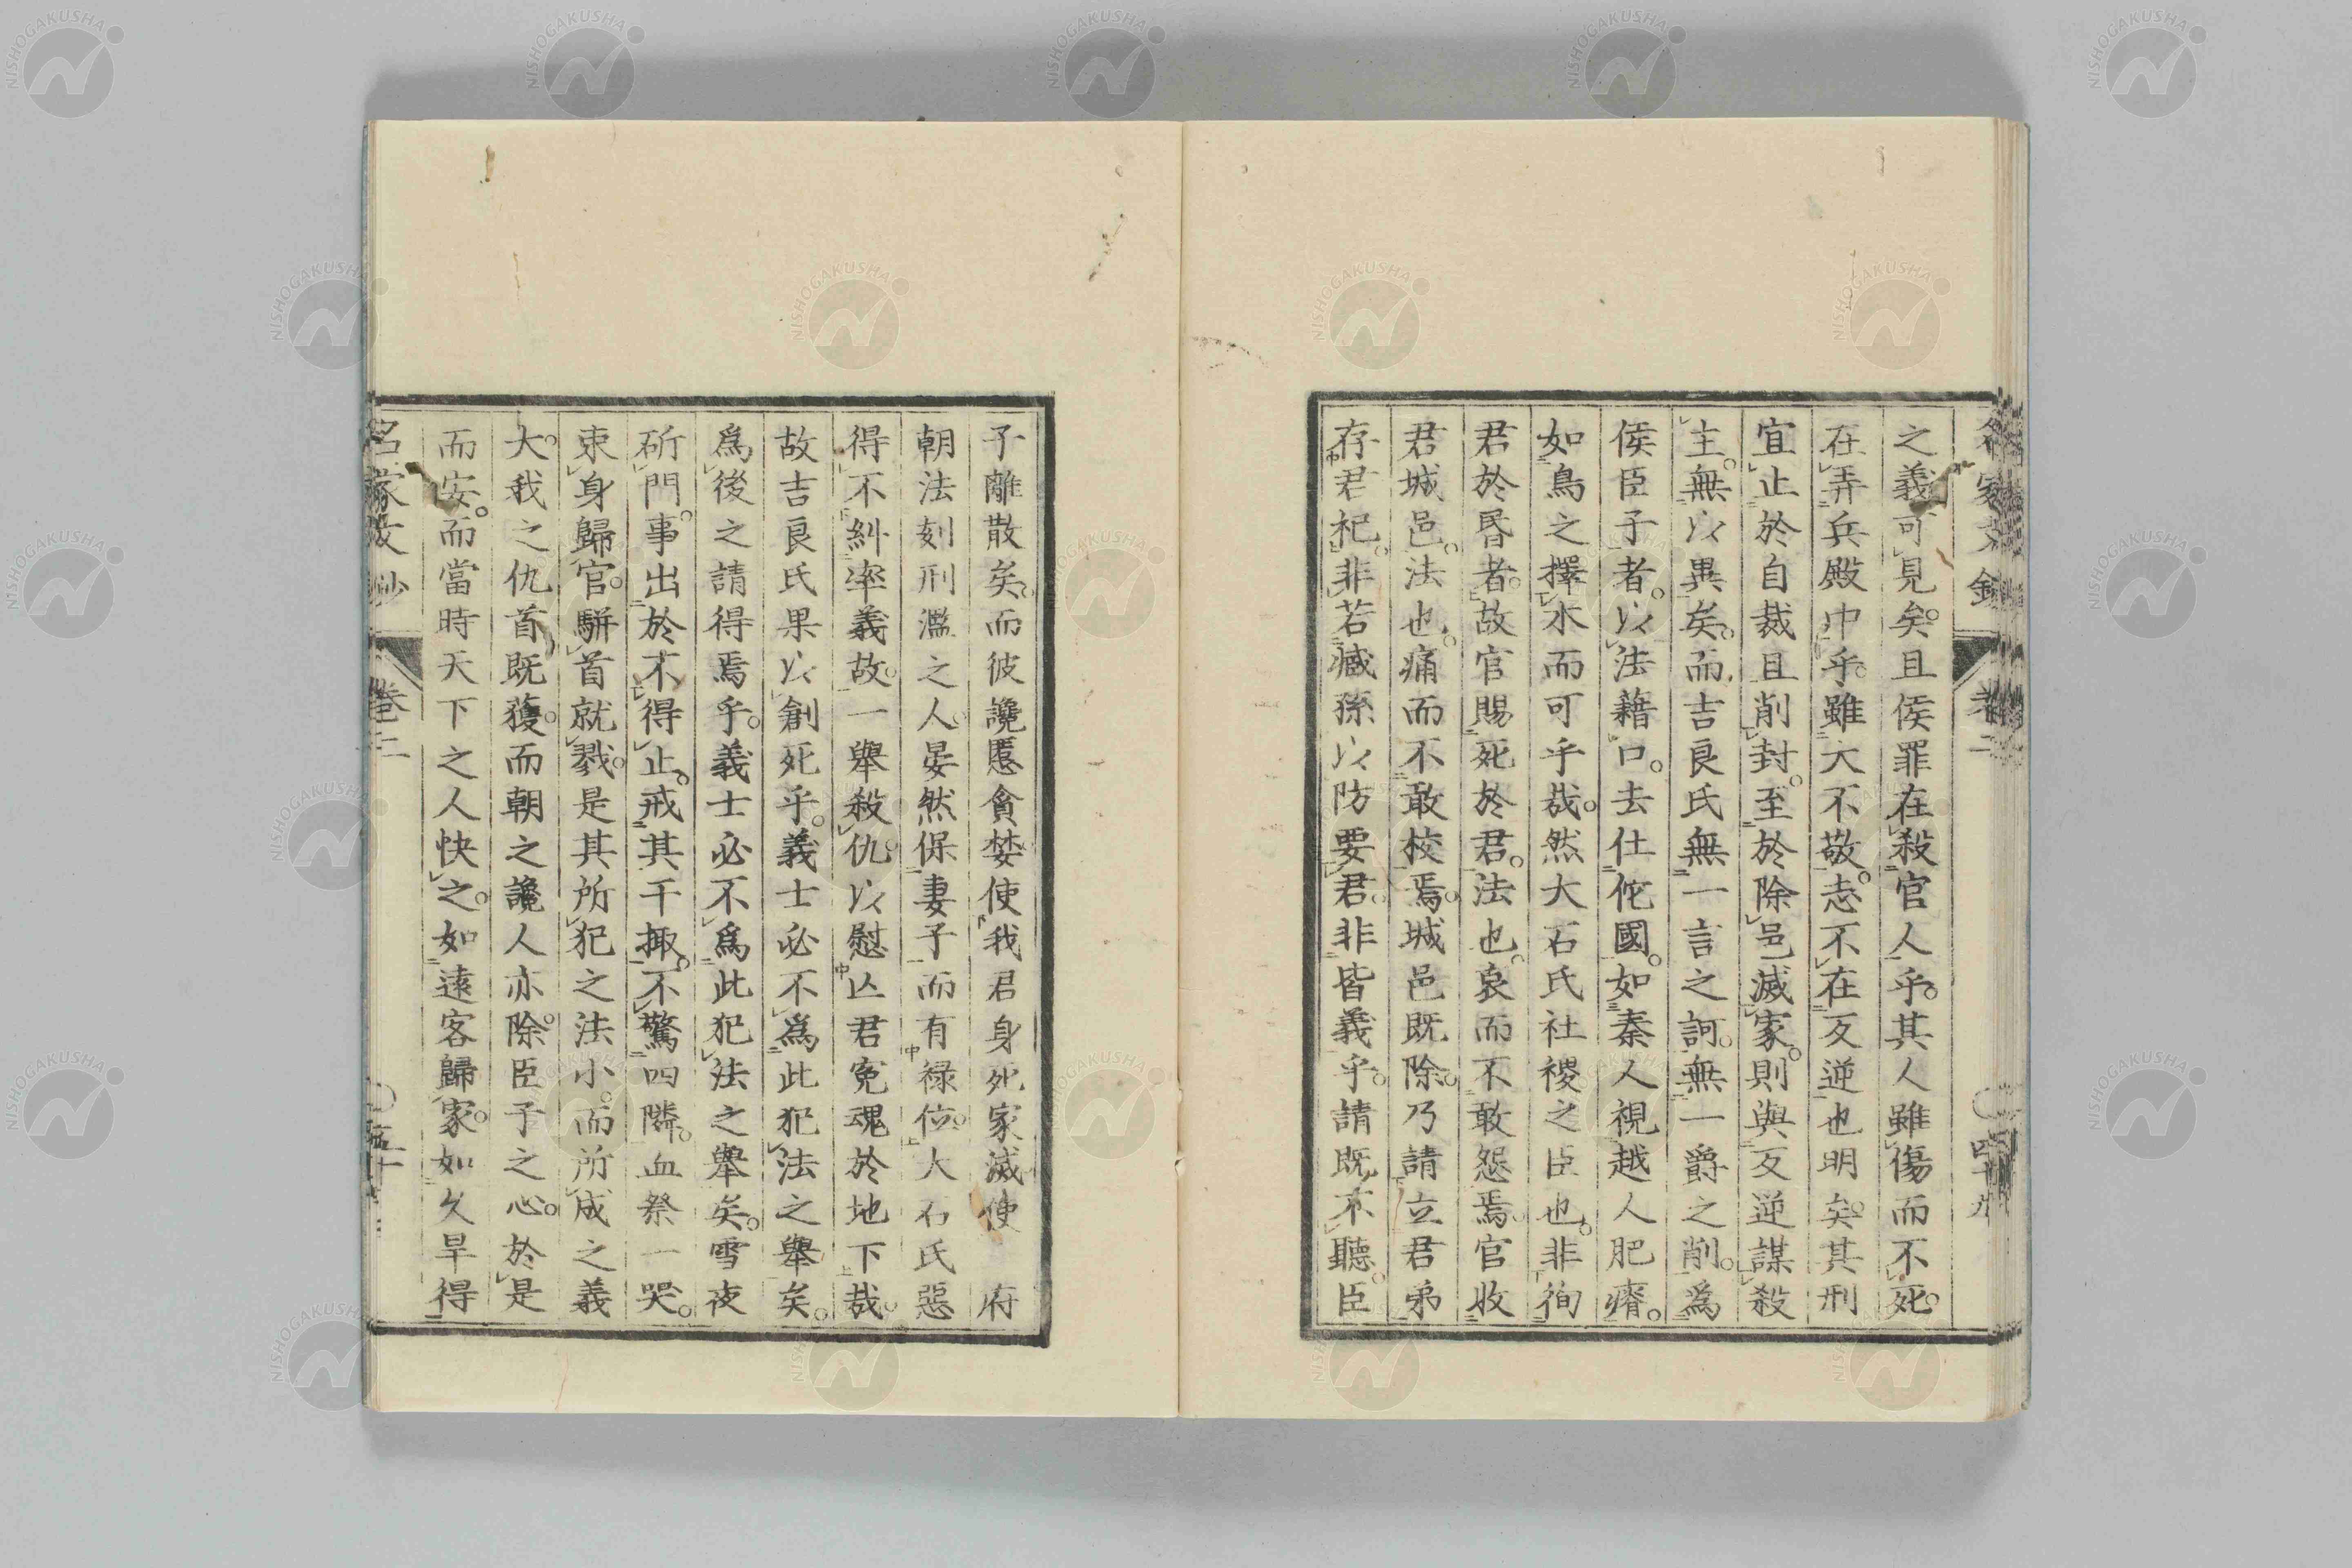 之義可見矣。且侯罪在殺官人乎。其人雖傷而不死。
在弄兵殿中乎。雖大不敬。志不在反逆也明矣。其刑
宜止於自裁且削封。至於除邑滅家。則與反逆謀殺
主。無以異矣。而吉良氏無一言之訶。無一爵之削。爲
侯臣子者。以法藉口。去仕佗國。如秦人視越人肥瘠。
如鳥之擇木而可乎哉。然大石氏社稷之臣也。非徇
君於昏者。故官賜死於君。法也。哀而不敢怨焉。官收
君城邑。法也。痛而不敢校焉。城邑既除。乃請立君弟
存君祀。非若臧孫以防要君。非皆義乎。請既不聽。臣
子離散矣。而彼讒慝貪婪使我君身死家滅使 府
朝法刻刑濫之人。晏然保妻子而有祿位。大石氏惡
得不糾率義故。一舉殺仇。以慰亾君冤魂於地下哉。
故吉良氏果以創死乎。義士必不爲此犯法之舉矣。
爲後之請得焉乎。義士必不爲此犯法之舉矣。雪夜
斫門。事出於不得止。戒其干掫。不驚四隣。血祭一哭。
束身歸官。駢首就戮。是其所犯之法小。而所成之義
大。我之仇首既獲。而朝之讒人亦除。臣子之心。於是
而安。而當時天下之人快之。如遠客歸家。如久旱得
名家文鈔 卷二